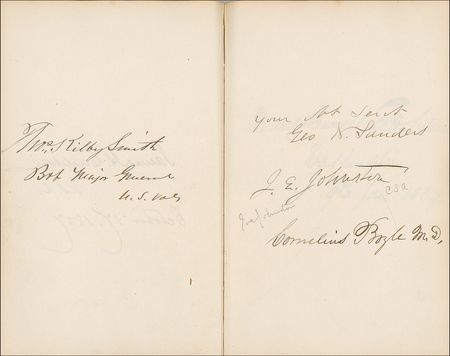 Thos. Kilby Smith
Bvt Major General
U.S. Vols
Your Obt Servt
Geo N. Sanders
J. E. Johnston
CSA
Cornelius Boyle M.D.